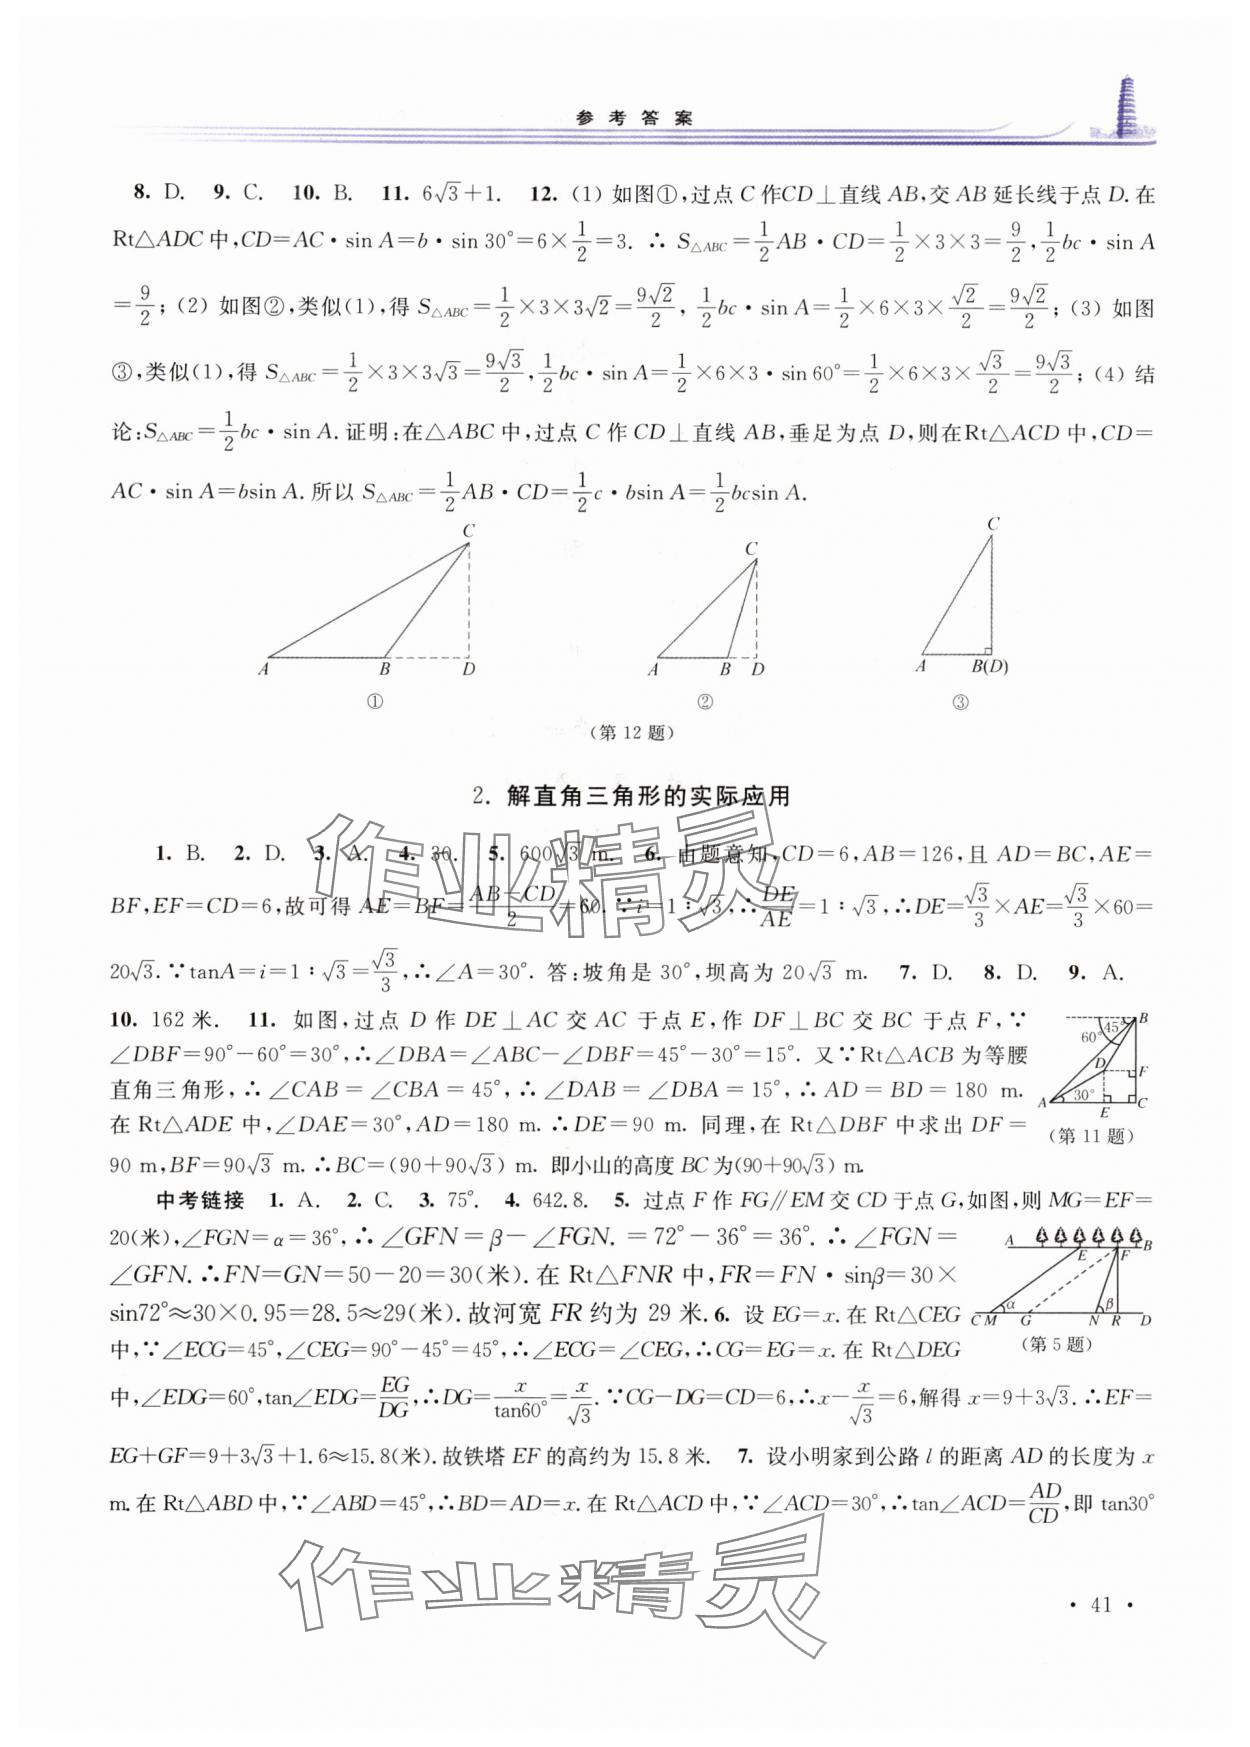 参考答案
8. D. 9. C. 10. B. 11. 6√3+1. 12. (1) 如图①,过点 C 作CD⊥直线 AB,交 AB 延长线于点 D. 在
Rt△ADC 中,CD=AC·sin A=b·sin 30°=6×1/2=3. ∴ S△ABC=1/2AB·CD=1/2×3×3=9/2,1/2bc·sin A
=9/2; (2) 如图②,类似(1),得 S△ABC=1/2×3×3√2=9√2/2, 1/2bc·sin A=1/2×6×3×√2/2=9√2/2; (3) 如图
③,类似(1),得 S△ABC=1/2×3×3√3=9√3/2,1/2bc·sin A=1/2×6×3·sin 60°=1/2×6×3×√3/2=9√3/2; (4) 结
论:S△ABC=1/2bc·sin A. 证明:在△ABC 中,过点 C 作 CD⊥直线 AB,垂足为点 D,则在Rt△ACD 中,CD=
AC·sin A=bsin A. 所以 S△ABC=1/2AB·CD=1/2c·bsin A=1/2bcsin A.
C
A B D
①
C
A B D
②
C
A B(D)
③
(第 12 题)
2. 解直角三角形的实际应用
1. B. 2. D. 3. A. 4. 30. 5. 600√3 m. 6. 由题意知,CD=6,AB=126,且 AD=BC,AE=
BF,EF=CD=6,故可得 AE=BF=(AB-CD)/2=60. ∵i=1∶√3,∴DE/AE=1∶√3,∴DE=√3/3×AE=√3/3×60=
20√3. ∵tanA=i=1∶√3=√3/3,∴∠A=30°. 答:坡角是 30°,坝高为 20√3 m. 7. D. 8. D. 9. A.
10. 162 米. 11. 如图,过点 D 作 DE⊥AC 交 AC 于点 E,作 DF⊥BC 交 BC 于点 F,∵
∠DBF=90°-60°=30°,∴∠DBA=∠ABC-∠DBF=45°-30°=15°. 又∵Rt△ACB 为等腰
直角三角形,∴∠CAB=∠CBA=45°,∴∠DAB=∠DBA=15°,∴AD=BD=180 m.
在 Rt△ADE 中,∠DAE=30°,AD=180 m. ∴DE=90 m. 同理,在 Rt△DBF 中求出 DF=
90 m,BF=90√3 m. ∴BC=(90+90√3) m. 即小山的高度 BC 为(90+90√3) m.
B
45°
60°
D F
A 30° E C
(第 11 题)
中考链接 1. A. 2. C. 3. 75°. 4. 642.8. 5. 过点 F 作 FG∥EM 交 CD 于点 G,如图,则 MG=EF=
20(米),∠FGN=α=36°,∴∠GFN=β-∠FGN.=72°-36°=36°. ∴∠FGN=
∠GFN. ∴FN=GN=50-20=30(米). 在 Rt△FNR 中,FR=FN·sinβ=30×
sin72°≈30×0.95=28.5≈29(米). 故河宽 FR 约为 29 米. 6. 设 EG=x. 在 Rt△CEG
中,∵∠ECG=45°,∠CEG=90°-45°=45°,∴∠ECG=∠CEG,∴CG=EG=x. 在 Rt△DEG
A E F B
α β
C M G N R D
(第 5 题)
中,∠EDG=60°,tan∠EDG=EG/DG,∴DG=x/tan60°=x/√3. ∵CG-DG=CD=6,∴x-x/√3=6,解得 x=9+3√3. ∴EF=
EG+GF=9+3√3+1.6≈15.8(米). 故铁塔 EF 的高约为 15.8 米. 7. 设小明家到公路 l 的距离 AD 的长度为 x
m. 在 Rt△ABD 中,∵∠ABD=45°,∴BD=AD=x. 在 Rt△ACD 中,∵∠ACD=30°,∴tan∠ACD=AD/CD,即 tan30°
作业精灵
作业精灵
· 41 ·